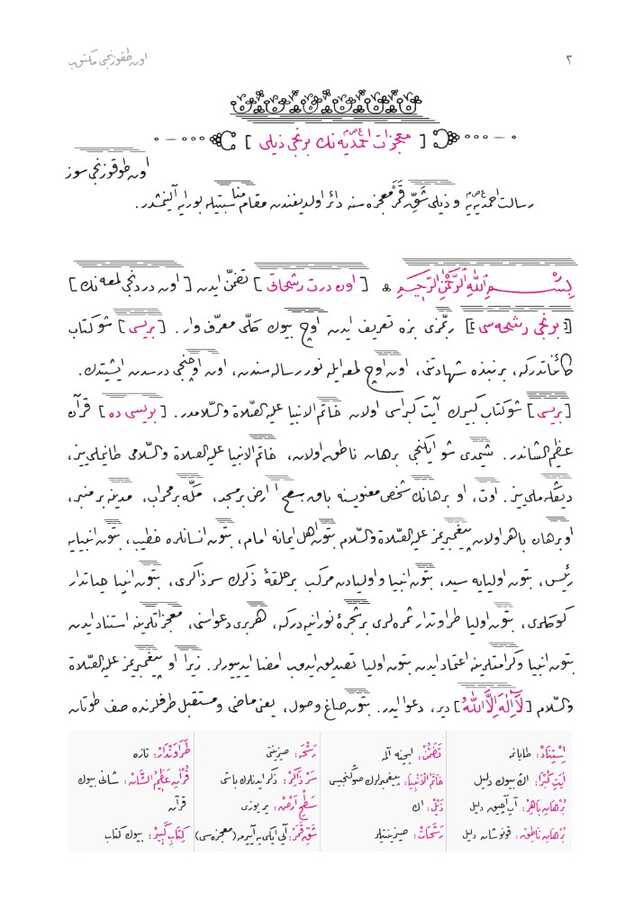 ٢
اون طقوزنجی مکتوب
[ معجزات احمدیه نك برنجی ذیلی ]
اون طوقوزنجی سوز
رسالت احمدیه یه و ذیلی شقّ قمر معجزه سنه دائر اولدیغندن مقام مناسبتیله بورایه آلینمشدر.
بِسْمِ اللّٰهِ الرَّحْمٰنِ الرَّحٖيمِ ۞ [ اون درت رشحاتی ] تضمّن ایدن [ اون دردنجی لمعه نك ]
[ برنجی رشحه سی ] ربّمزی بزه تعریف ایدن اوچ بیوك کلّی معرّف وار. [ بریسی ] شو کتاب
کائناتدرکه، بر نبذه شهادتنی، اون اوچ لمعه ایله نور رساله سندن، اون اوچنجی درسدن ایشیتدك.
[ بریسی ] شو کتاب کبیرك آیت کبراسی اولان خاتم الانبیا علیه الصّلاة والسّلامدر. [ بریسی ده ] قرآن
عظیم الشّاندر. شیمدی شو ایکنجی برهان ناطق اولان، خاتم الانبیا علیه الصّلاة والسّلامی طانیملی یز،
دیڭله ملی یز. اوت، او برهانك شخص معنویسنه باق، سطح ارض بر مسجد، مکّه بر محراب، مدینه بر منبر،
او برهان باهر اولان پیغمبریمز علیه الصّلاة والسّلام بتون اهل ایمانه امام، بتون انسانلره خطیب، بتون انبیایه
رئیس، بتون اولیایه سید، بتون انبیا و اولیادن مرکّب بر حلقۀ ذکرك سرذاکری، بتون انبیا حیاتدار
کوکلری، بتون اولیا طراوتدار ثمره لری بر شجرۀ نورانیه درکه، هر بری دعواسنی، معجزاتلرینه استناد ایدن
بتون انبیا و کرامتلرینه اعتماد ایدن بتون اولیا تصدیق ایدوب امضا ایدییورلر. زیرا او پیغمبریمز علیه الصّلاة
والسّلام [ لَا اِلٰهَ اِلَّا اللّٰهُ ] دیر، دعوا ایدر. بتون صاغ و صول، یعنی ماضی و مستقبل طرفلرنده صف طوتان
اِسْتِنَادْ: طایانمه
آیَتِ کُبْرَا: اڭ بیوك دلیل
بُرْهَانِ بَاهِرْ: آپ آچیق دلیل
بُرْهَانِ نَاطِقْ: قونوشان دلیل
تَضَمُّنْ: ایچنه آلمه
خَاتَمُ الْاَنْبِيَا: پیغمبرلرك صوڭنجیسی
ذَیْلْ: اك
رَشَحَاتْ: صیزینتیلر
رَشْحَه: صیزینتی
سَرْ ذَاکِرْ: ذکر ایدنلرك باشی
سَطْحِ اَرْضْ: یر یوزی
شَقِّ قَمَرْ: آیی ایکی یه آییرمه (معجزه سی)
طَرَاوَتْدَارْ: تازه
قُرْآنِ عَظٖيمُ الشَّانْ: شانی بیوك
قرآن
کِتَابِ کَبٖيرْ: بیوك کتاب